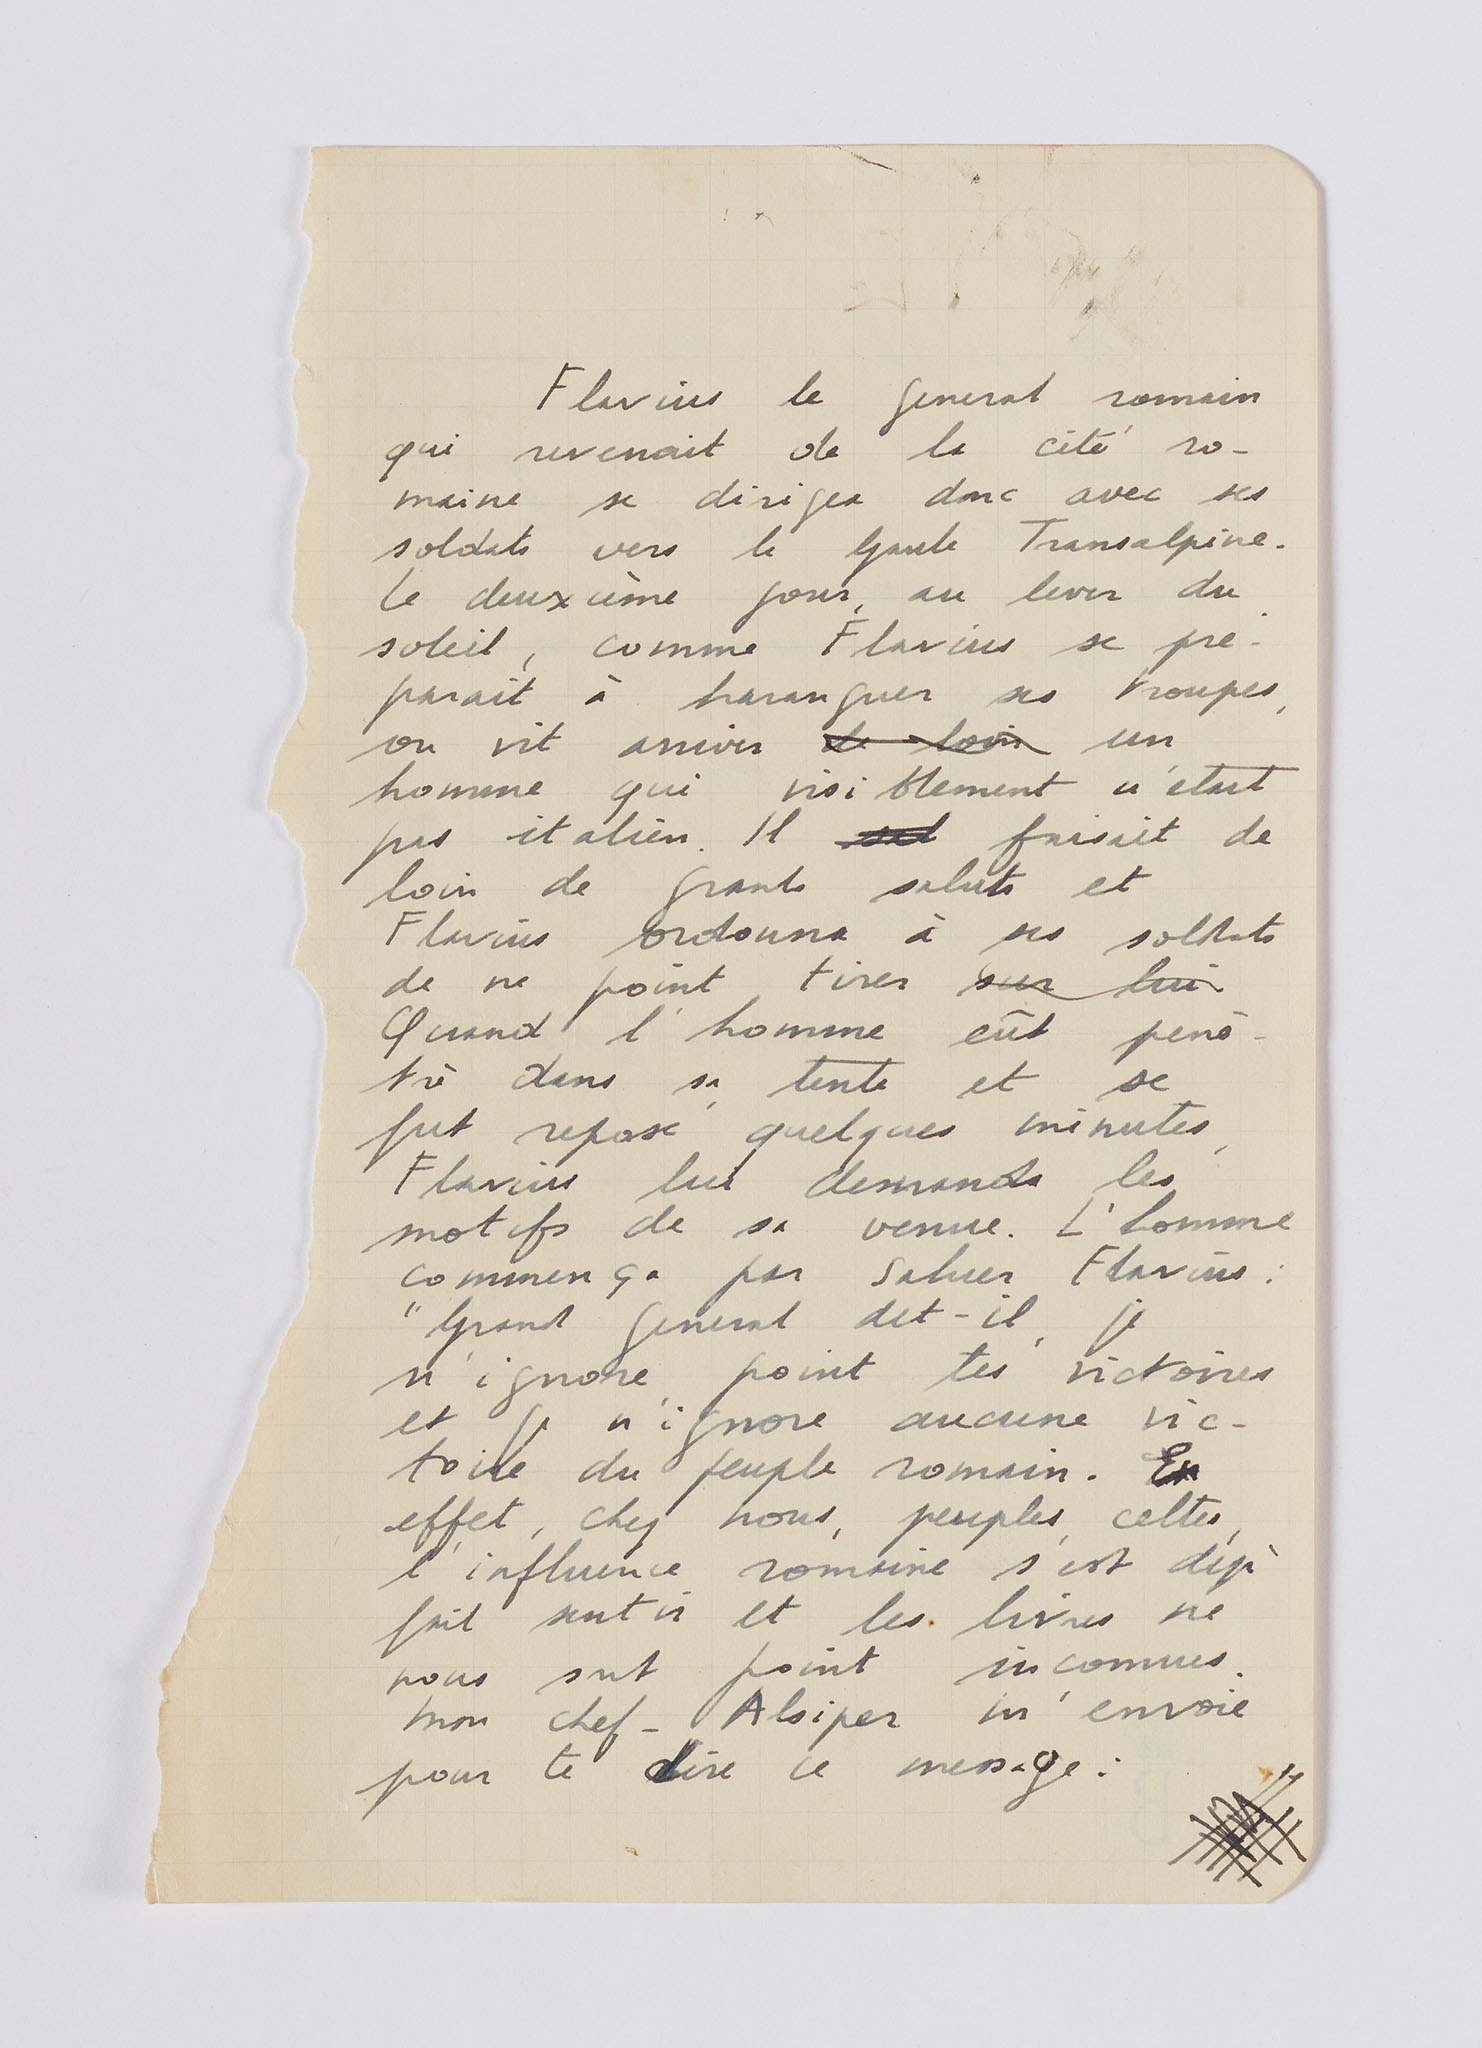 Flavius le general romain
qui revenait de la cité ro-
maine se dirigea donc avec ses
soldats vers la Gaule Transalpine.
Le deuxième jour, au lever du
soleil, comme Flavius se pré-
parait à haranguer ses troupes,
on vit arriver de loin un
homme qui visiblement n'était
pas italien. Il faisait de
loin de grants saluts et
Flavius ordonna à ses soldats
de ne point tirer sur lui
Quand l'homme eût péné-
tré dans sa tente et se
fut reposé quelques minutes,
Flavius lui demanda les
motifs de sa venue. L'homme
commença par saluer Flavius :
"Grand general dit-il, je
n'ignore point tes victoires
et je n'ignore aucune vic-
toire du peuple romain. En
effet, chez nous, peuples celtes,
l'influence romaine s'est déjà
fait sentir et les livres ne
nous sont point inconnues.
Mon chef - Alsiper m'envoie
pour te dire ce message :